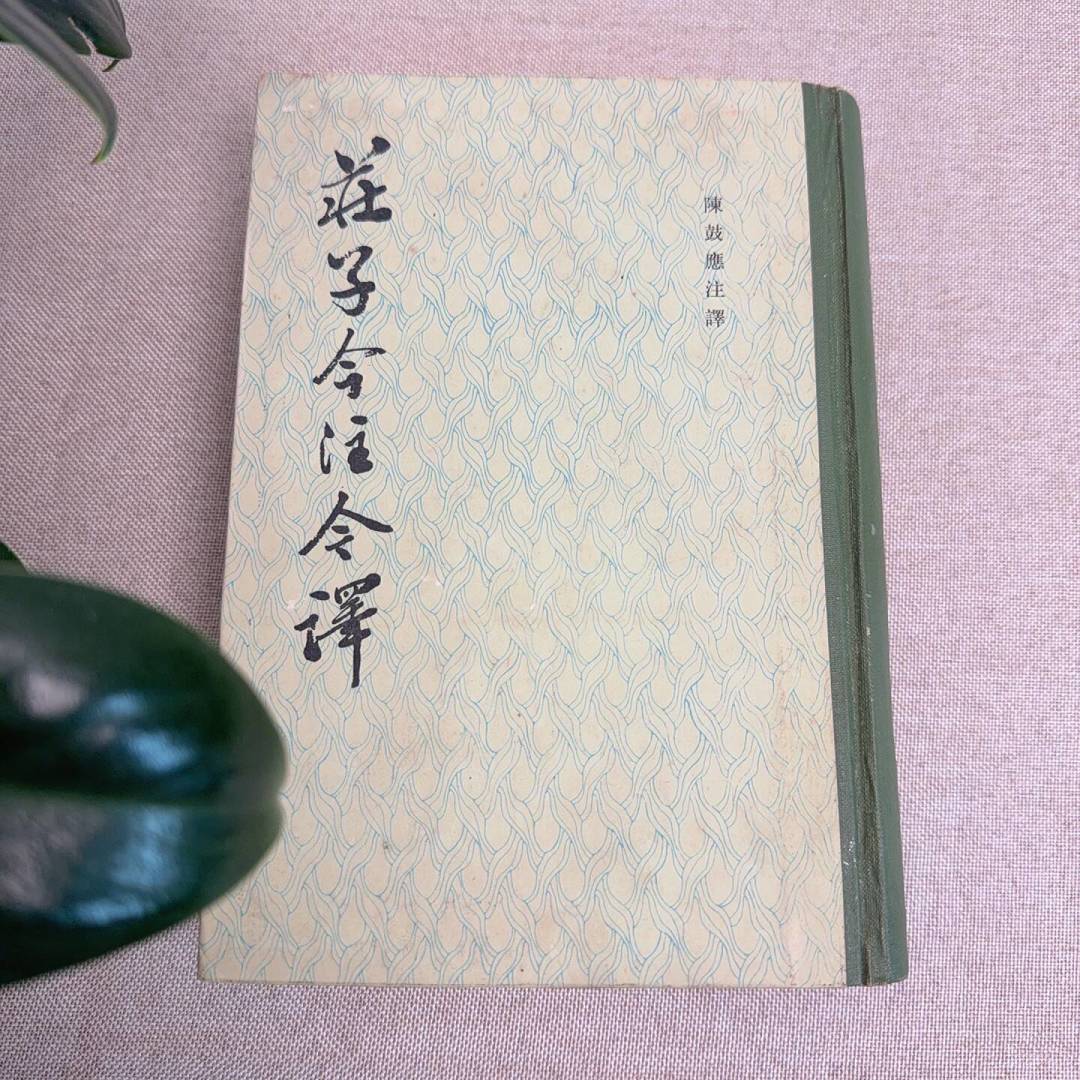 陳鼓應注譯
莊子今注今譯